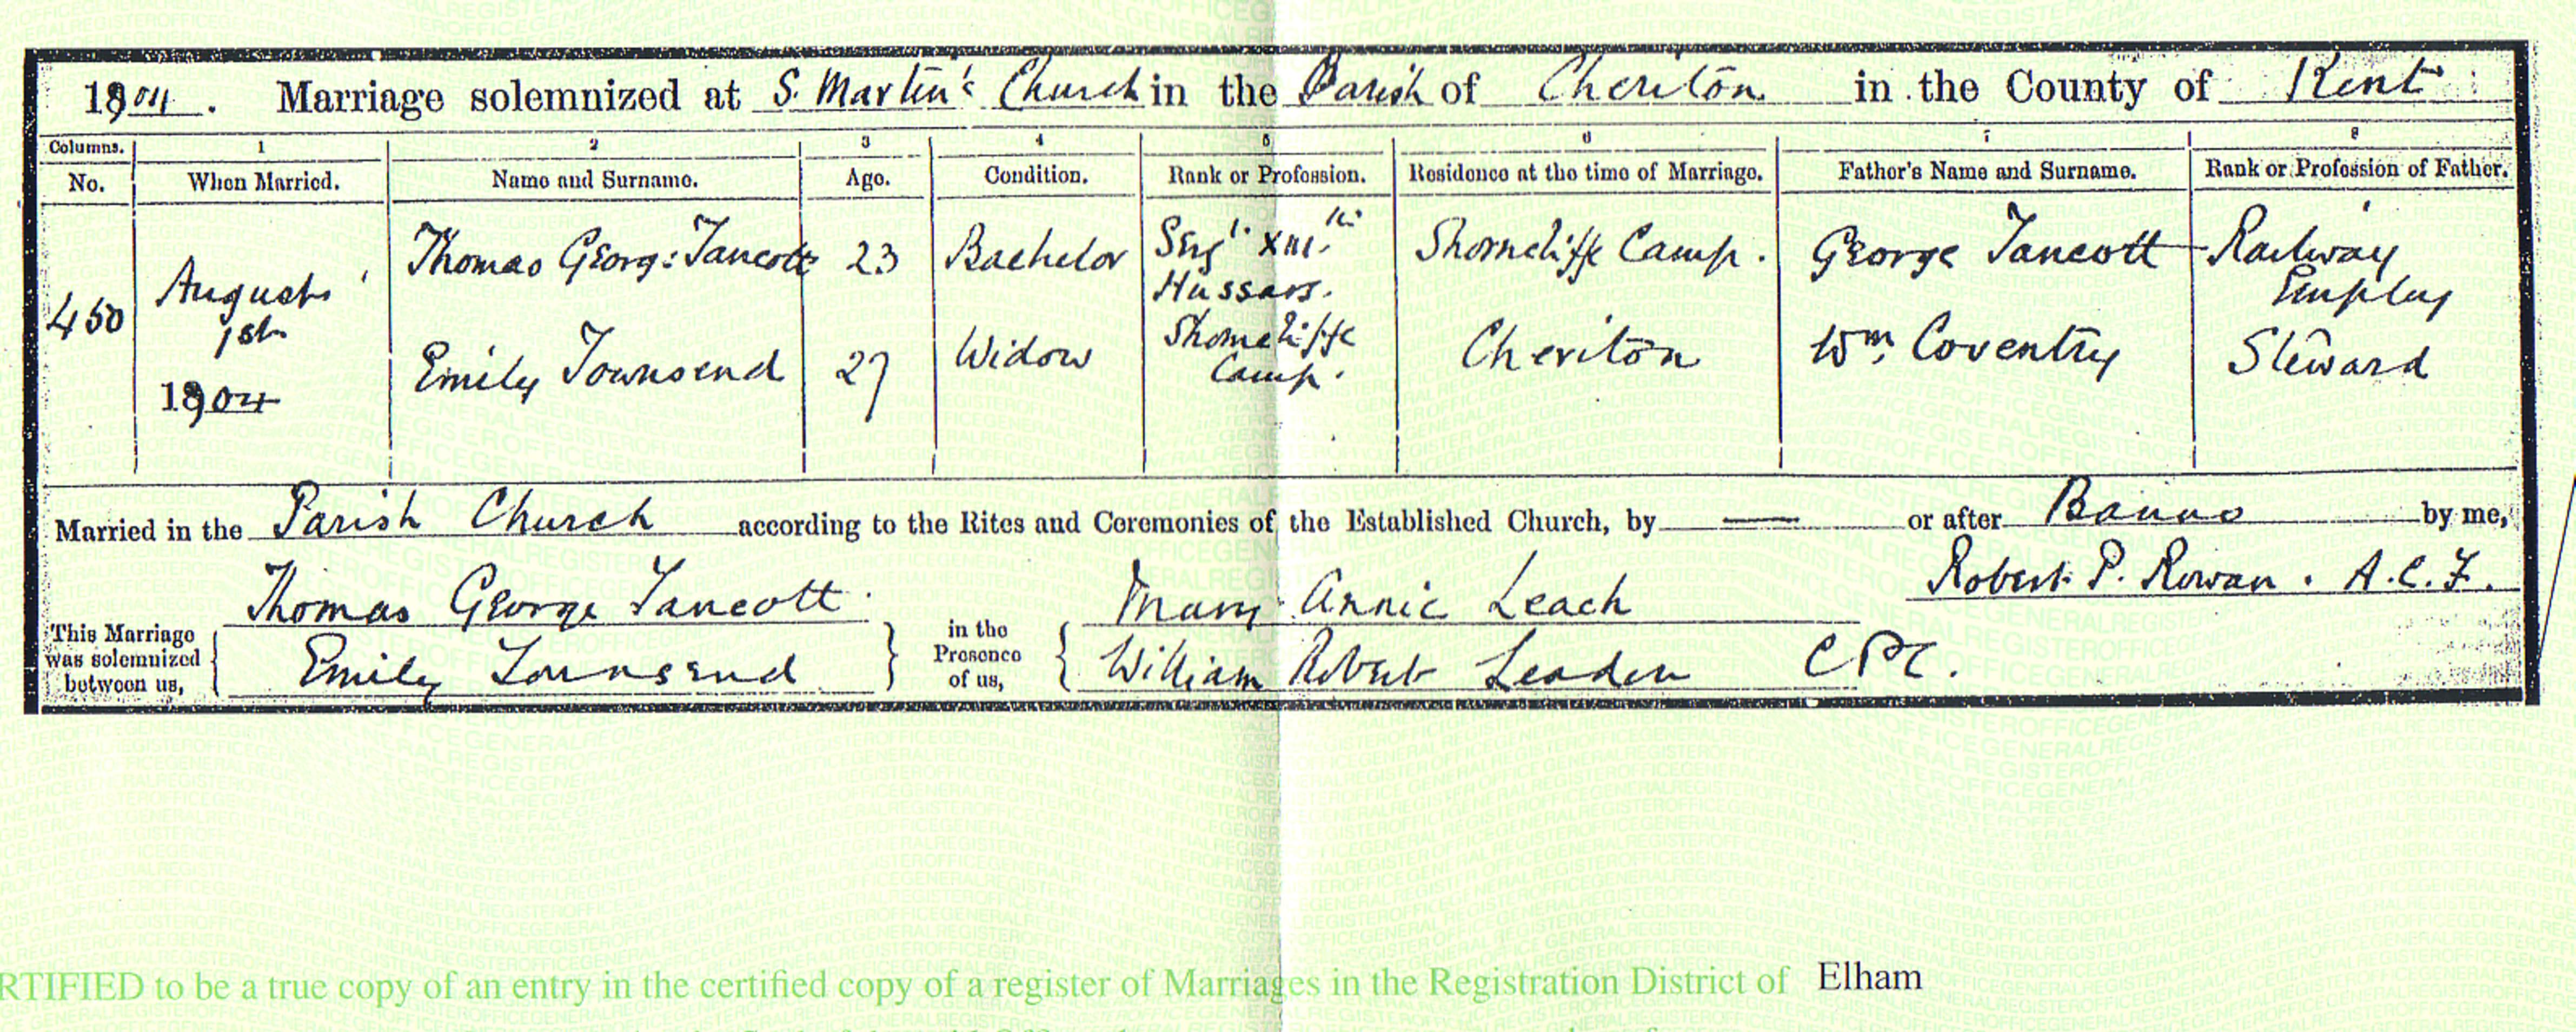 1904. Marriage solemnized at S. Martin's Church in the Parish of Cheriton in the County of Kent
Columns. 1 2 3 4 5 6 7 8
No. When Married. Name and Surname. Age. Condition. Rank or Profession. Residence at the time of Marriage. Father's Name and Surname. Rank or Profession of Father.
450 August 1st 1904
Thomas George Tancott 23 Bachelor Sergt. XIII.th Hussars. Shorncliffe Camp. George Tancott Railway Employ
Shorncliffe Camp.
Emily Townsend 27 Widow Cheriton Wm. Coventry Steward
Married in the Parish Church according to the Rites and Ceremonies of the Established Church, by — or after Banns by me,
Robert P. Rowan. A.C.F.
This Marriage was solemnized between us, { Thomas George Tancott. Emily Townsend } in the Presence of us, { Mary Annie Leach William Robert
CERTIFIED to be a true copy of an entry in the certified copy of a register of Marriages in the Registration District of Elham